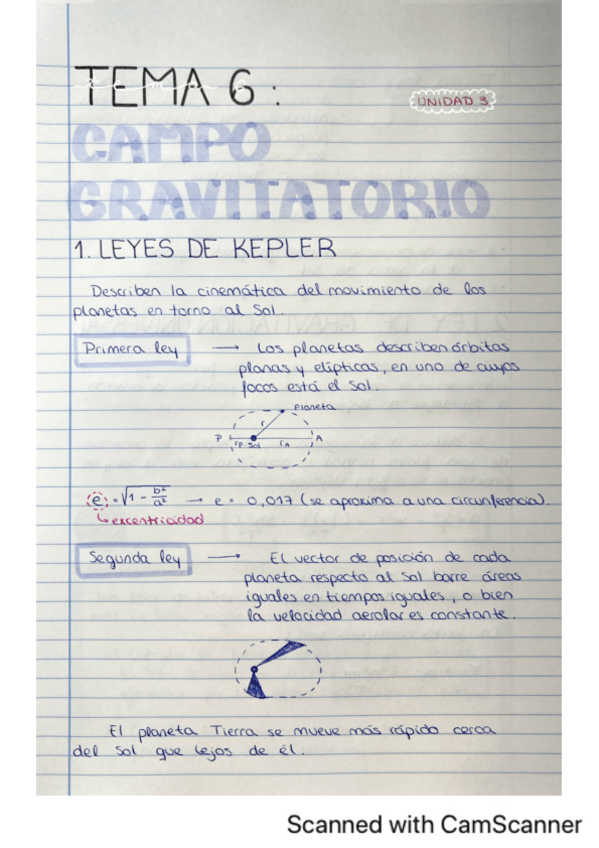 TEMA 6:
UNIDAD 3
CAMPO
GRAVITATORIO
1. LEYES DE KEPLER
Describen la cinemática del movimiento de los
planetas en torno al Sol.
Primera ley → Los planetas describen órbitas
planas y elípticas, en uno de cuyos
focos está el Sol.
Planeta
r
P rp Sol rA A
e = √1 - b²/a² → e = 0,017 (se aproxima a una circunferencia).
↳ excentricidad
Segunda ley → El vector de posición de cada
planeta respecto al Sol barre áreas
iguales en tiempos iguales, o bien
la velocidad aerolar es constante.
El planeta Tierra se mueve más rápido cerca
del Sol que lejos de él.
Scanned with CamScanner